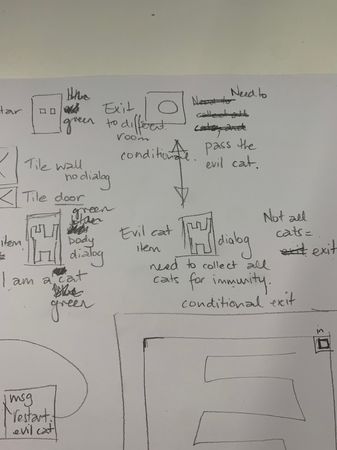 tar
green
Exit
to different
room
conditional.
Need to
Need to
collect all
cats, and
pass the
evil cat.
Tile wall
no dialog
Tile door
green
item
body
dialog
I am a cat
green
Evil cat
item
dialog
need to collect all
cats for immunity.
conditional exit
Not all
cats =
exit exit
msg
restart.
evil cat
m